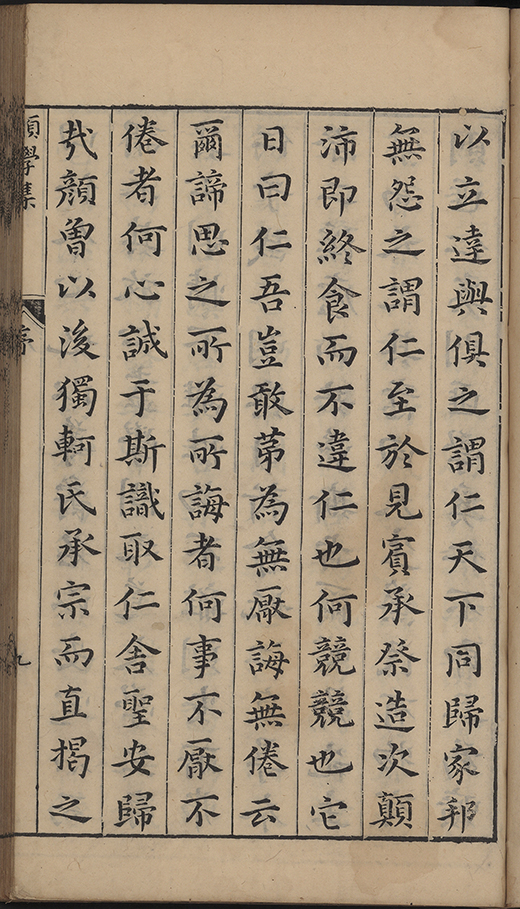 以立達與俱之謂仁天下同歸家邦
無怨之謂仁至於見賓承祭造次顛
沛即終食而不違仁也何競競也它
日曰仁吾豈敢苐為無厭誨無倦云
爾諦思之所為所誨者何事不厭不
倦者何心誠于斯識取仁舍聖安歸
㢤顏曾以後獨軻氏承宗而直揭之
學集
序
九